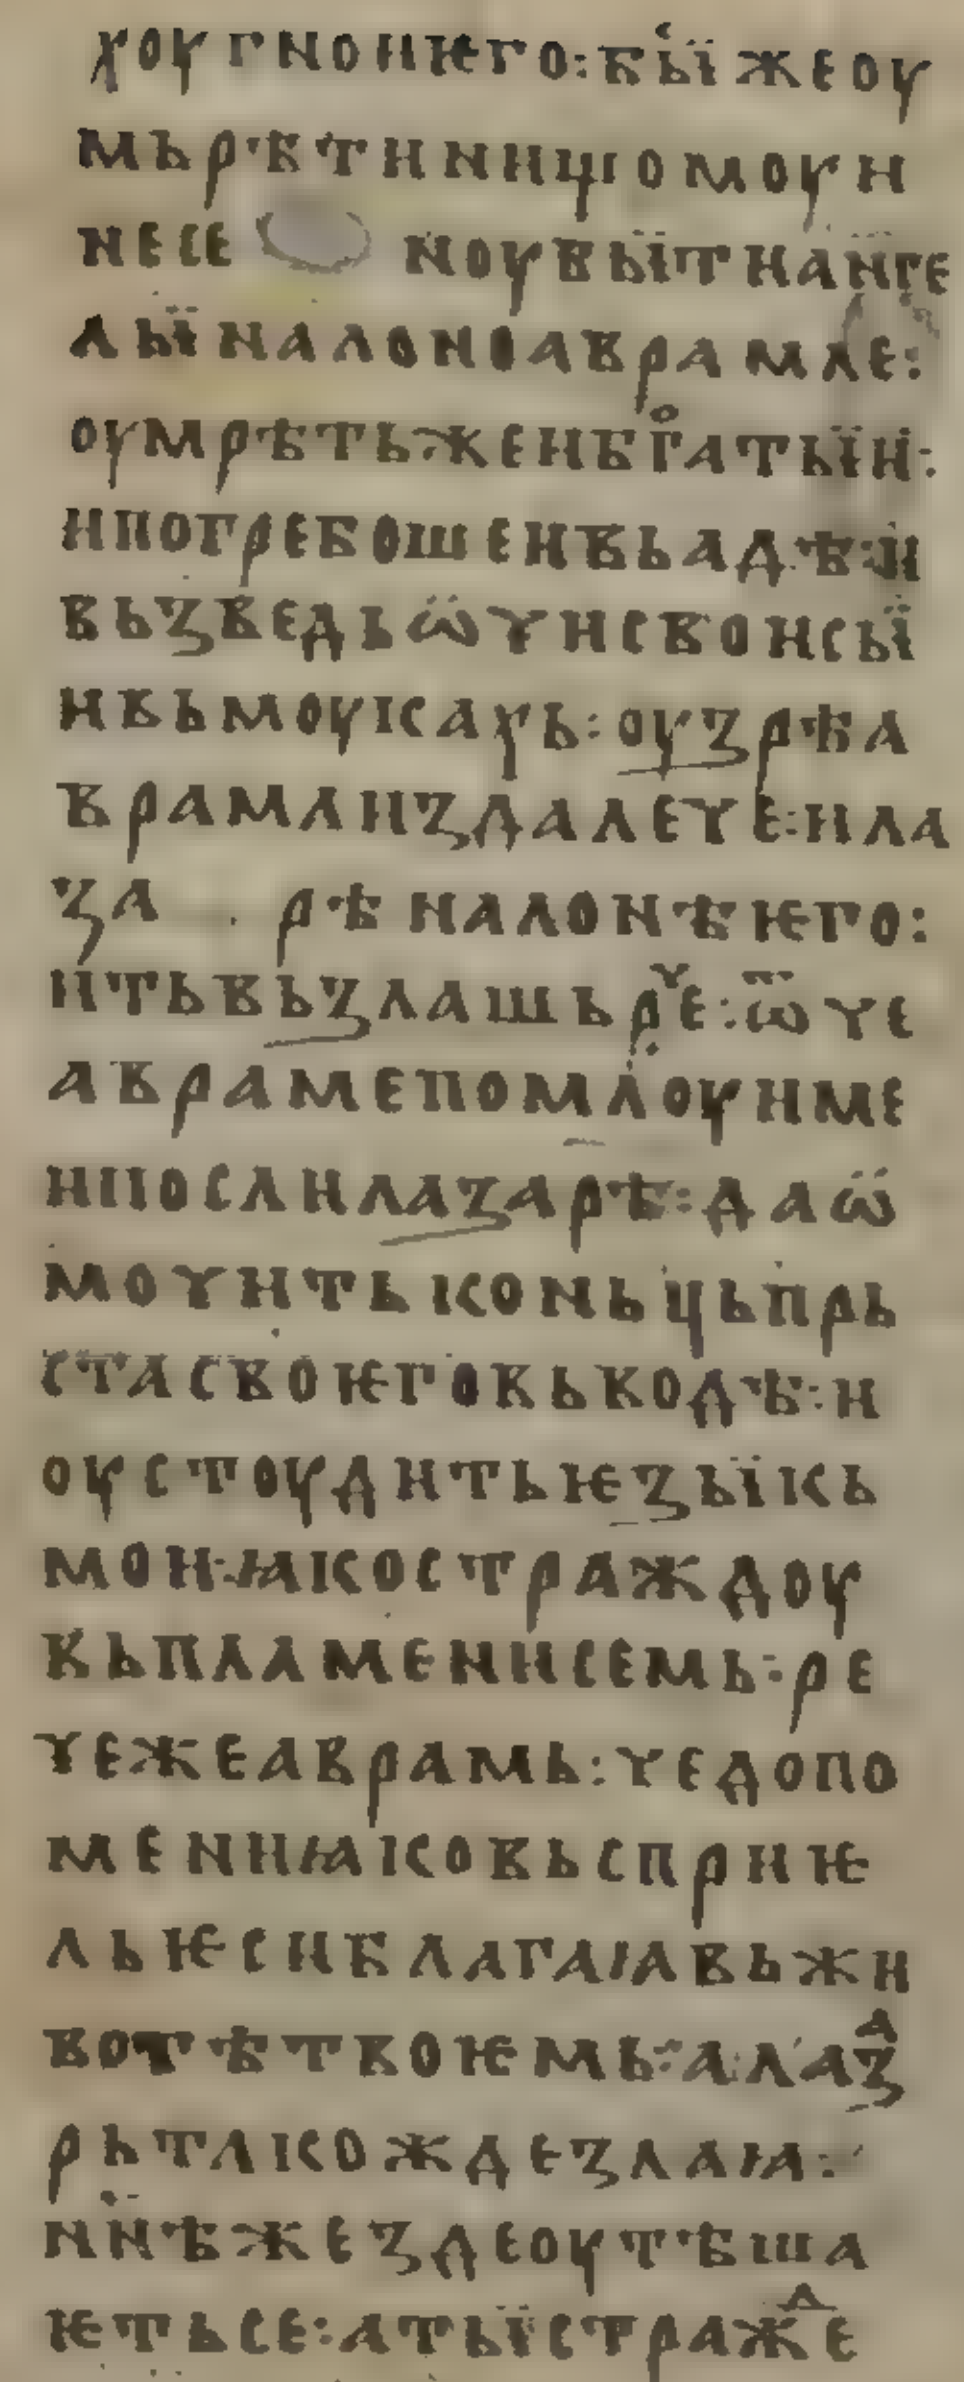 хоу гнои ѥго : бӹ же оу
мьрѣти нищомоу и
несе ноу бӹти ан̑ге
лӹ на лоно аврамле :
оумрѣть же и бг҃атӹи :
и погребоше и вь адѣ : и
вьзведь ѡ̈чи свои сӹ
и вь моукахь : оузрѣ а
врама издалече : и ла
за рѣ на лонѣ ѥго :
и ть вьзлашь рⷱ҇е : ѿче
авраме помл҃оуи ме
и посли лазарѣ : да ѡ̈
мочить коньць прь
ста своѥго вь водѣ : и
оустоудить ѥзӹкь
мои · ꙗко страждоу
вь пламени семь : ре
че же аврамь : чедо по
мени ꙗко вьсприѥ
ль ѥси благаꙗ вь жи
вотѣ твоѥмь : а лазⷶ
рь такожде злаꙗ :
нн҃ѣ же зде оутѣша
ѥть се : а тӹ стражⷣе